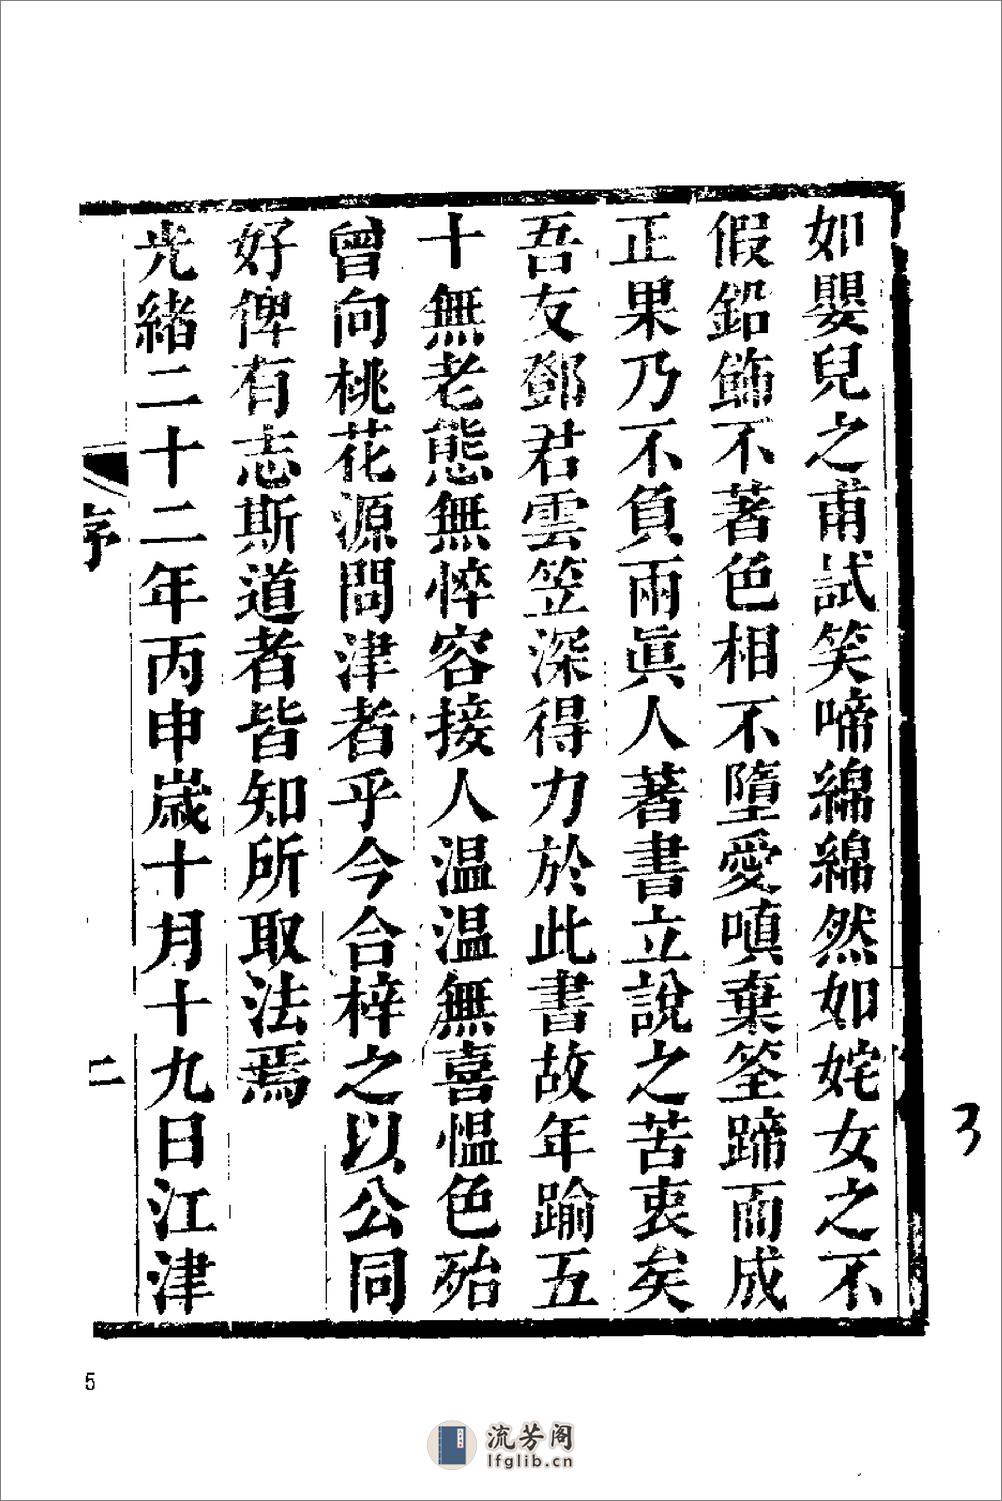 如嬰兒之甫試笑啼綿綿然如姹女之不
假鉛飾不著色相不墮愛嗔棄筌蹄而成
正果乃不負兩眞人著書立說之苦衷矣
吾友鄧君雲笠深得力於此書故年踰五
十無老態無悴容接人溫溫無喜慍色殆
曾向桃花源問津者乎今合梓之以公同
好俾有志斯道者皆知所取法焉
光緒二十二年丙申歲十月十九日江津
序
二
3
5
流芳阁
lfglib.cn